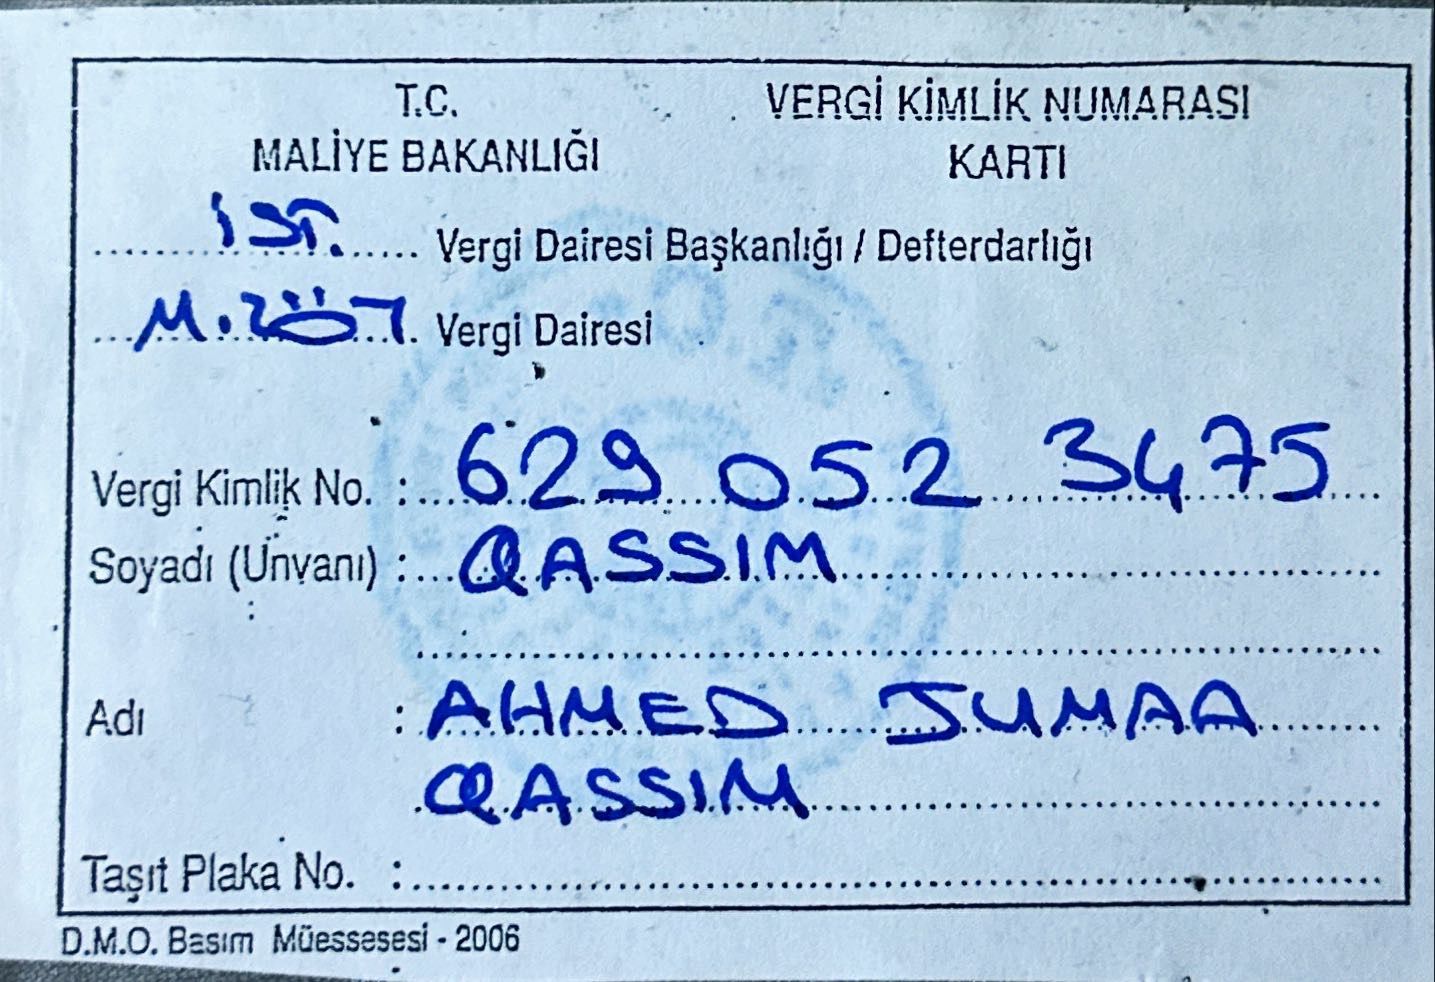 T.C.
MALİYE BAKANLIĞI
VERGİ KİMLİK NUMARASI
KARTI
İST. Vergi Dairesi Başkanlığı / Defterdarlığı
Vergi Dairesi
Vergi Kimlik No. : 629 052 3475
Soyadı (Ünvanı) : QASSIM
Adı : AHMED JUMAA
QASSIM
Taşıt Plaka No. :
D.M.O. Basım Müessesesi - 2006